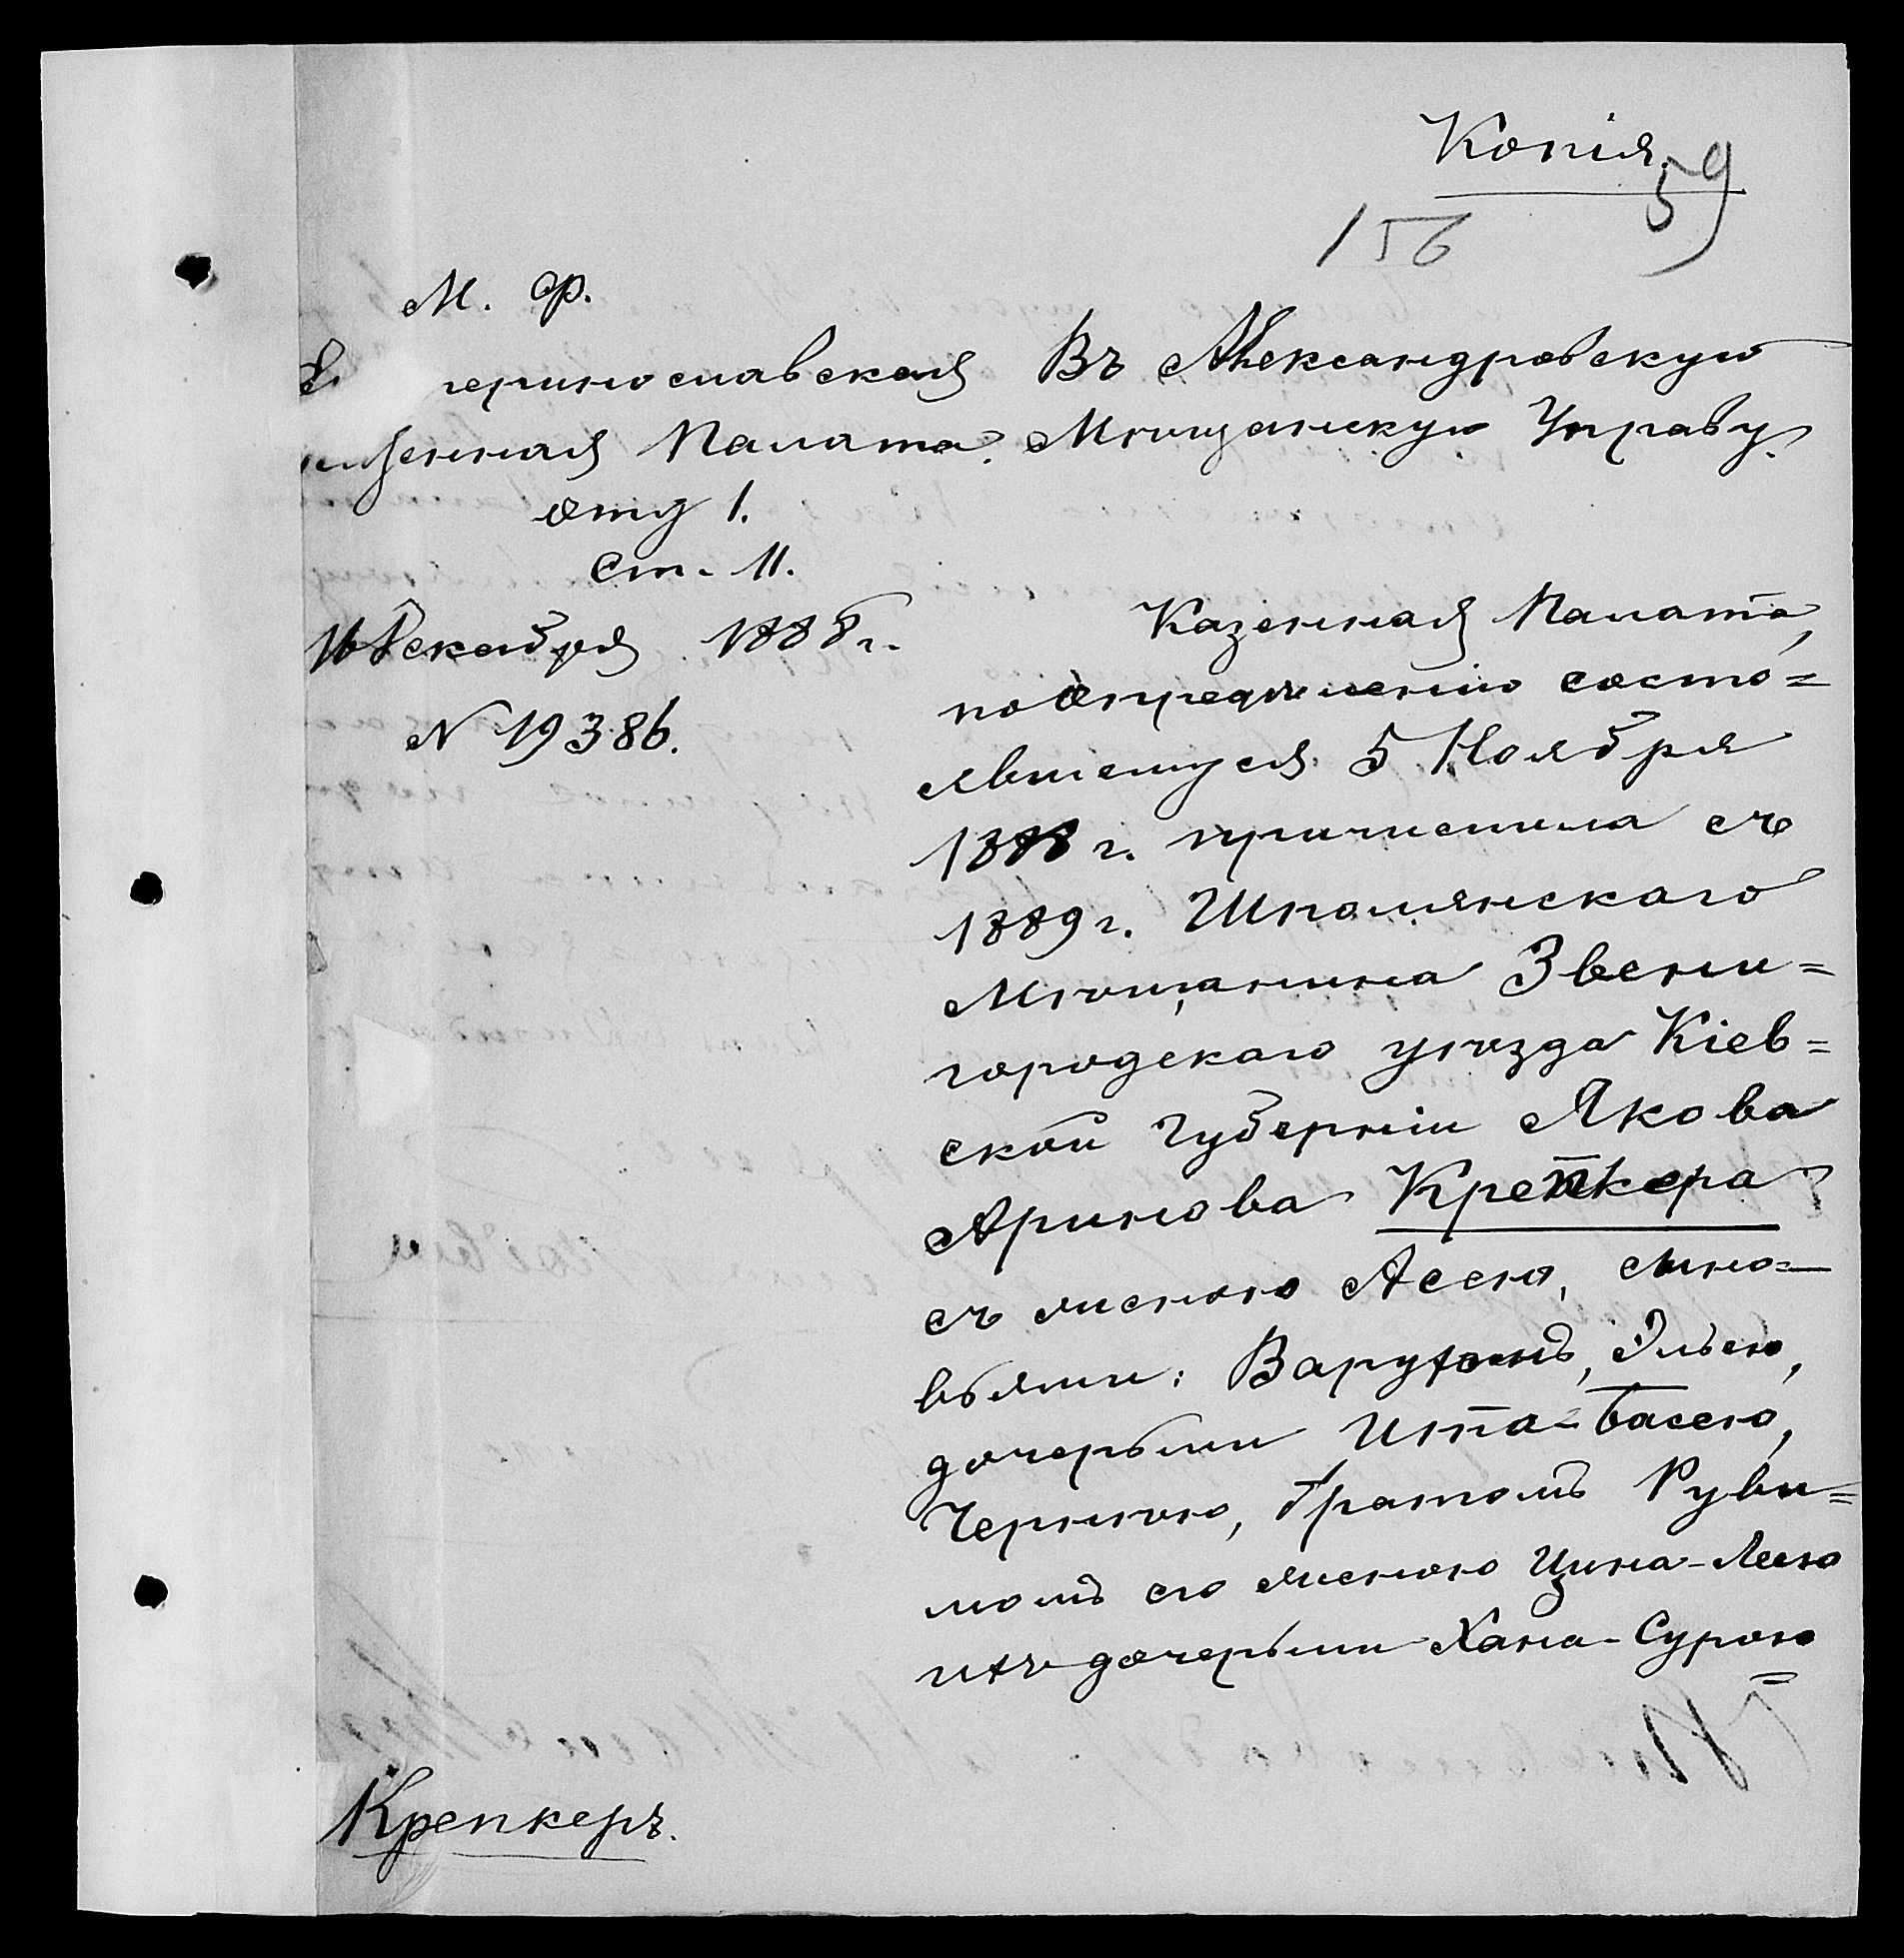 Копія.
59
156
М. Ф.
Е теринославская
зенная Палата.
отд 1.
ст. 11.
16 Декабря 1888 г.
№ 19386.
Въ Александровскую
Мѣщанскую Управу.
Казенная Палата,
по опредѣленію состо=
явшемуся 5 Ноября
1888 г. причислила съ
1889 г. Шполянскаго
Мѣщанина Звени=
городскаго уѣзда Кіев=
ской Губерніи Якова
Аринова Крепкера
съ женою Асею, сыно=
вьями: Варухомъ, Эльею,
дочерьми Ита-Басею,
Чернею, братомъ Руви=
момъ его женою Цина-Леею
ихъ дочерьми Хана-Сурою
=
Крепкеръ.